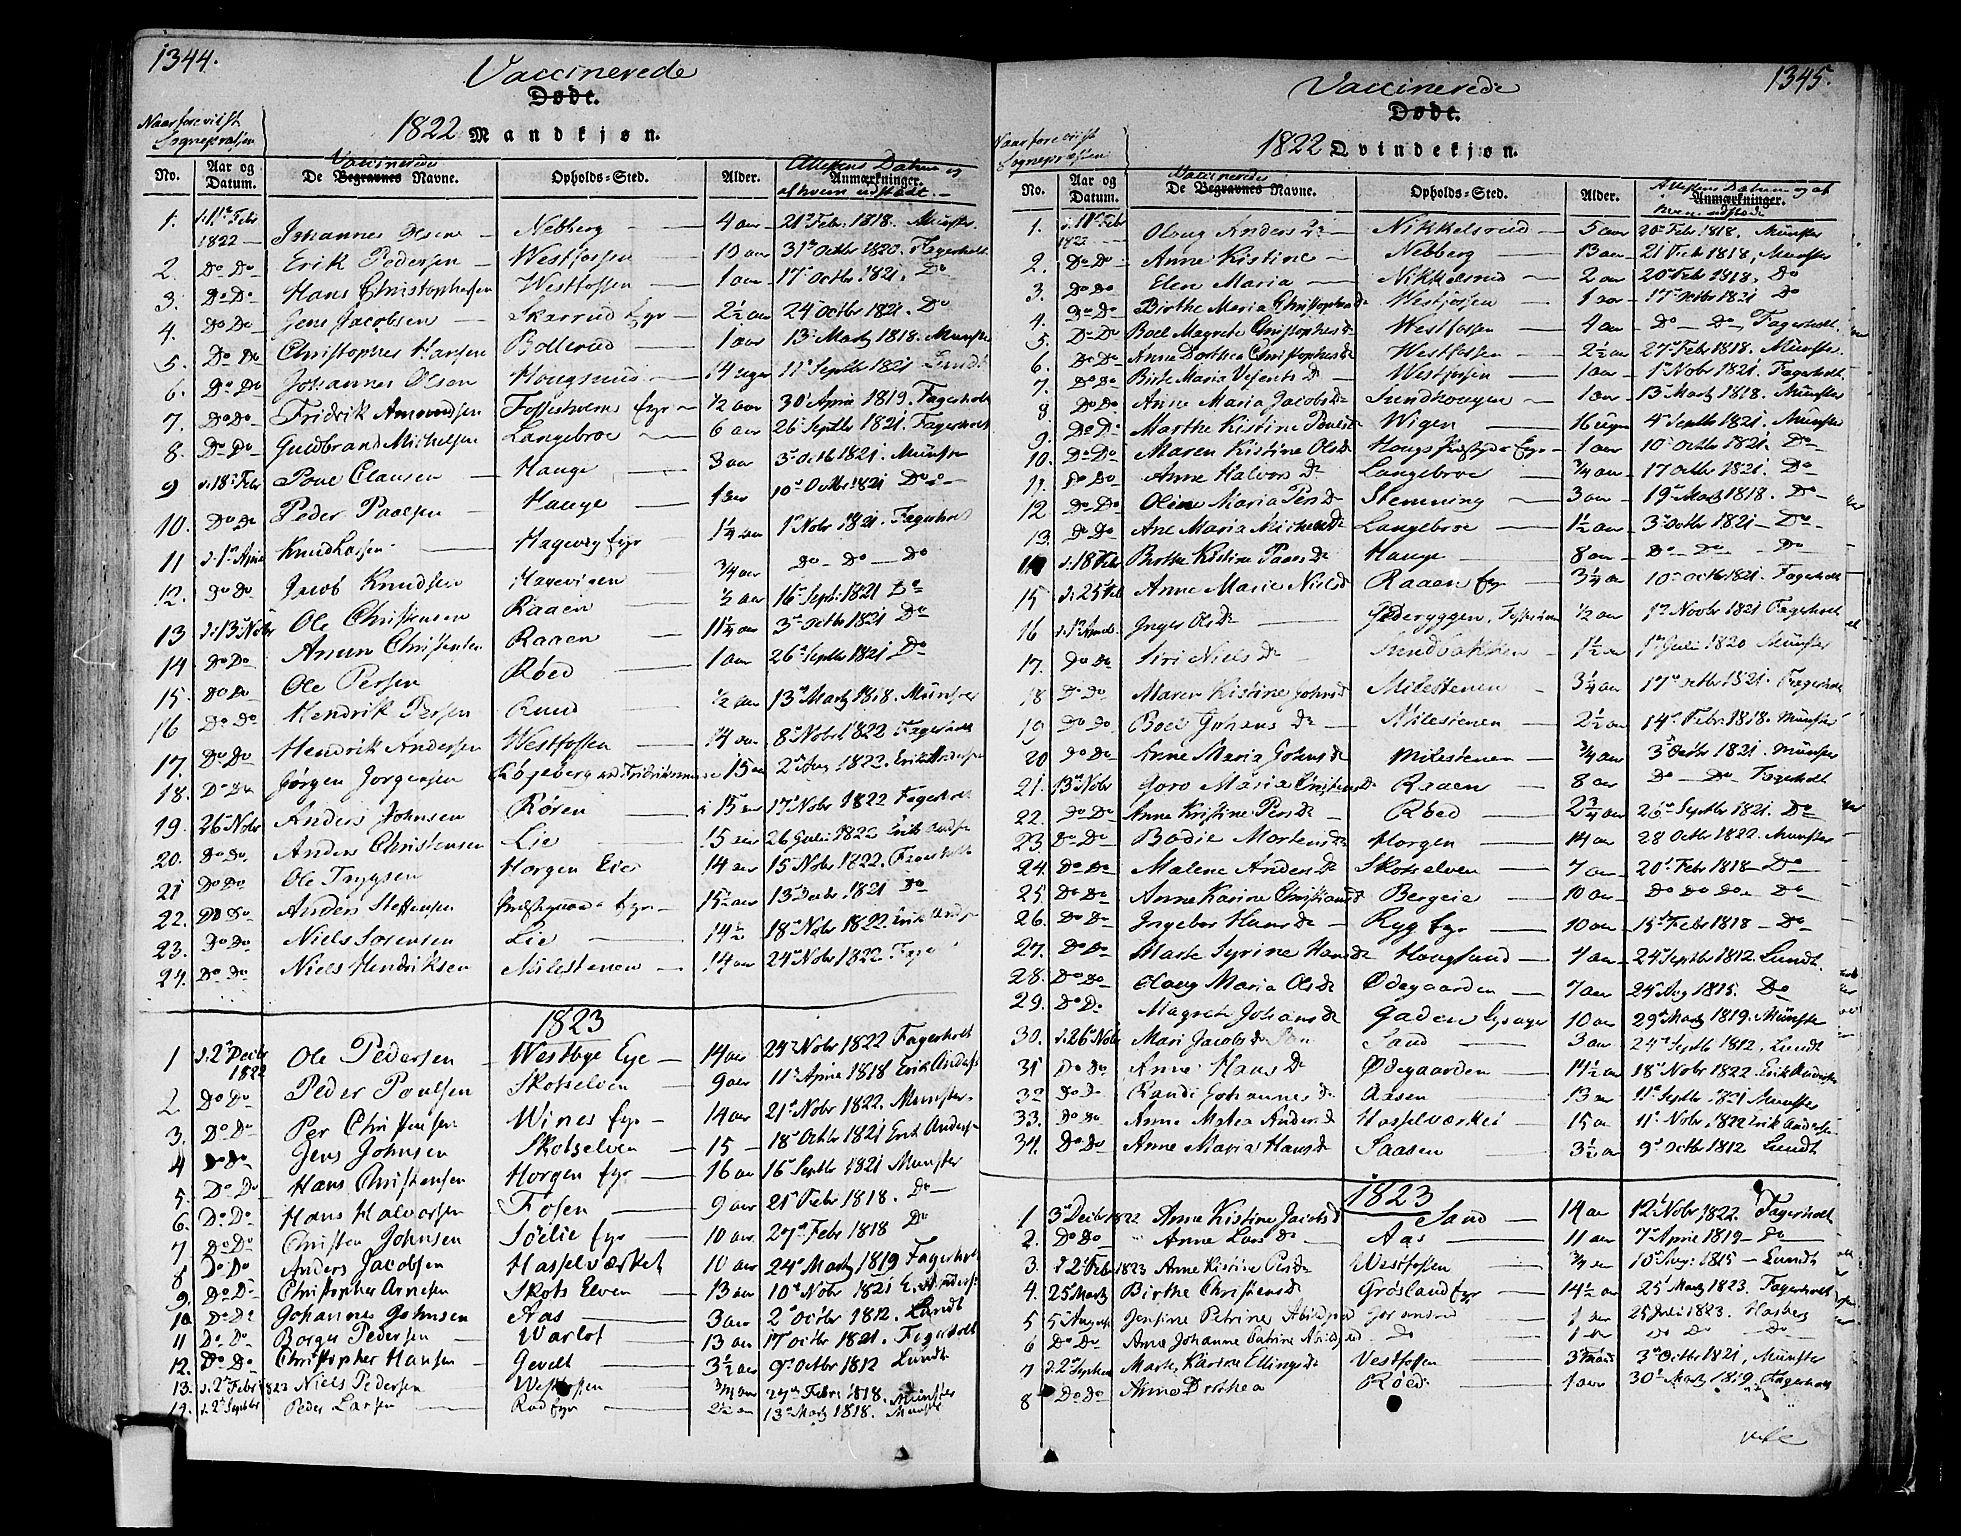 1344.
Vaccinerede
Døde.
Naar forevist Sognepræsten
1822 Mandkjøn.
No. Aar og Datum. De Begravnes Vaccinerede Navne. Opholds-Sted. Alder. Anmærkninger. Attestens Datum og af hvem udstædt.
1. d. 11te Febr 1822 Johannes Olsen Nebberg 4 aar 21de Febr. 1818. Münster
2. Do Do Erik Pedersen Westfossen 10 aar 31te Octbr 1820. Fagerholt
3. Do Do Hans Christophersen Westfossen 1 aar 17de Octbr 1821. Do
4. Do Do Jens Jacobsen Skarrud Eyr 2½ aar 24 Octbr 1821. Do
5. Do Do Christopher Hansen Bollerud 1 aar 13de Martz 1818. Munster
6. Do Do Johannes Olsen Hougsrud 14 uger 11te Septbr 1821
7. Do Do Fridrik Amundsen Fossesholms Eyr ½ aar 30te April 1819. Fagerholt
8. Do Do Guldbrand Michelsen Langebroe 6 aar 26 Septbr 1821. Fagerholt
9 d. 18de Febr Poul Clausen Hauge 3 aar 3de Octb 1821. Münster
10. Do Do Peder Paalsen Hauge 1 aar 10de Octbr 1821 Do
11 d. 1te April Knud Larsen Hagevey Eyr 1¼ aar 1te Nobr 1821. Fagerholt
12. Do Do Jacob Knudsen Hagevigen ¾ aar Do Do Do
13 d. 13de Nobr Ole Christensen Raaen ½ aar 16de Septbr 1821 Do
14 Do Do Amun Christensen Raaen 11¼ aar 3de Octbr 1821 Do
15. Do Do Ole Persen Røed 1 aar 26de Septbr 1821 Do
16 Do Do Hendrik Persen Ruud ½ aar 13de Martz 1818. Münster
17. Do Do Hendrik Andersen Westfossen 14 aar 8de Nobr 1822 Fagerholt
18. Do Do Jørgen Jorgensen 15 aar 2de Aug 1822. Erik Andersen
19. 26de Nobr Anders Johnsen Røren 15 aar 17de Nobr 1822 Fagerholt
20. Do Do Anders Christensen Lie 15 aar 26 Juli 1822 Erik Anders
21 Do Do Ole Trygsen Horgen Eie 14 aar 15de Nobr 1822. Fagerholt
22. Do Do Anders Steffensen Eyr 15½ aar 13de Decbr 1821 Do
23. Do Do Niels Sorensen Lie 14½ 18de Nobr 1822. Erik Anders
24. Do Do Niels Hendriksen Milestenen 14 aar 24de Nobr 1822 Fage
1823
1 d. 2de Decbr 1822 Ole Pedersen Westbye Eye 14 aar 24de Nobr 1822 Fagerholt
2 Do Do Peder Poulsen Skotselven 9 aar 11te April 1818 Erik Anders
3. Do Do Per Christensen Wines Eyr 14 aar 21de Nobr 1822. Munster
4 Do Do Jens Johnsen Skotselven 15 18de Octbr 1821 Erik Anders
5. Do Do Hans Christensen Horgen Eyr 16 aar 16de Septbr 1821 Munster
6. Do Do Hans Halvorsen Fosen 9 aar 21de Febr 1818. Do
7 Do Do Christen Johnsen Sølie Eyr 10 aar 27de Febr 1818 Do
8 Do Do Anders Jacobsen Hasselværket 10 aar 24de Martz 1819 Fagerholt
9. Do Do Christopher Arnesen Skots Elven 13 aar 10de Nobr 1821 Erik Anders
10 Do Do Johannes Johnsen Aas 3 aar 2de Octbr 1812. Lundt
11 Do Do Borger Pedersen Warlof 13 aar 17 Octbr 1821. Fagerholt
12. Do Do Christopher Hansen Gevelt 3½ aar 9de Octbr 1812 Lundt
13. d. 2de Febr 1823 Niels Pedersen Westfossen ¾ aar 27de Febr 1818. Münster
14. d. 2de Septbr Peder Larsen Rud Eyr 2½ aar 13de Martz 1818. Munster
1345.
Vaccinerede
Døde.
Naar forevist Sognepræsten
1822 Qvindekjøn.
No. Aar og Datum. De Begravnes Vaccinerede Navne. Opholds-Sted. Alder. Anmærkninger. Attestens Datum og af hvem udstædt
1. d. 11te Febr 1822 Oloug Anders D. Nikkelsrud 5 aar 20de Febr. 1818. Münster
2. Do Do Anne Kistine Nebberg 13 aar 21 Feb 1818, Münster
3. Do Do Elen Maria Nikkelsrud 2 aar 20de Febr 1818. Do
4. Do Do Birthe Maria Christophersd Westfossen 1 aar 17de Octbr 1821 Do
5. Do Do Boel Magrete Christophersd Westfossen 4 aar Do Do Fagerholt
6. Do Do Anne Dorthea Christophersd Westfossen 2½ aar 27de Febr 1818. Münster
7. Do Do Birte Maria Vesents D Westfossen 1 aar 1te Nobr 1821. Fagerholt
8 Do Do Anne Maria Jacobsd Sundhougen 1 aar 13de Martz 1818. Münster
9. Do Do Marthe Kistine Poulsd Wigen 16 ugr 4de Septbr 1821. Münster
10. Do Do Maren Kistine Olsd Eyr 1 aar 10de Octbr 1821. Do
11. Do Do Anne Halvors D Langebroe ¾ aar 17 Octbr 1821. Do
12 Do Do Oline Maria Persd Stemning 3 aar 19de Martz 1818. Do
13. Do Do Ane Maria Michelsd Langebroe 1½ aar 3de Octbr 1821 Do
14 d. 18 Febr Birthe Kistine Paals D Hauge 8 aar Do Do Do
15 d. 25 Feb Anne Marie Nielsd Raaen Eyr 3¼ aar 10de Octb 1821. Fagerholt
16 d. 1te April Inger Olsd Øderyggen, ½ aar 1te Novbr 1821 Fagerholt
17. Do Do Siri Niels D Sundbakken 1½ aar 1te Juli 1820 Münster
18 Do Do Maren Kistine Johnsd Milestenen 3¼ aar 17de Octbr 1821. Fagerholt
19 Do Do Boel Johans D Milestenen 2½ aar 14de Febr. 1818. Münster
20 Do Do Anne Maria Johnsd Milestenen ¾ aar 3de Octbr 1821. Münster
21. 13de Nobr Goro Maria Cristensd Raaen 8 aar Do Do Fagerholt
22. Do Do Anne Kristine Persd Røed 2¾ aar 26de Septbr 1821. Do
23. Do Do Bodie Mortensd Horgen 14 aar 28 Octbr 1822. Munster
24. Do Do Malene Anders D Skotselven 7 aar 20de Febr 1818 Do
25. Do Do Anne Karine Christiansd Bergeie 10 aar Do Do Do Do
26. Do Do Ingebor Hans D Ryg Eyr 10 aar 15de Febr 1818 Do
27. Do Do Marte Syrine Hans D Hougsund 4 aar 24de Septbr 1812. Lundt.
28. Do Do Oloug Maria Olsd Ødegaarden 7 aar 24de Aug 1815. Do
29. Do Do Magrete Johans D Gaden 10 aar 29de Martz 1819. Münster
30. d. 26de Nobr Mari Jacobsd Sand 3 aar 24de Septbr 1812. Lundt
31 Do Do Anne Hans D Ødegaarden 14½ aar 18de Nobr 1822. Erik Anders
32 Do Do Randi Johannes D Aasen 13 aar 11te Septbr 1821 Münster
33. Do Do Anne Mathea Anders D Hasselværket 15 aar 11te Nobr 1822 Erik Anders
34. Do Do Anne Maria Hansd Saasen 3½ aar 9de Octbr 1812 Lundt
1823
1 3de Decbr 1822 Anne Kistine Jacobsd Sand 14 aar 12te Nobr 1822. Fagerholt
2. Do Do Anne Lars D Aas 11 aar 7de April 1819 Do
3. d 2de Febr 1823 Anne Kistine Persd Westfossen ¾ aar 10de Aug. 1815 Lundt
4. 25 Martz Birthe Christensd Grøsland Eyr 14½ aar 25de Martz 1823. Fagerholt
5 5te August Jensine Petrine 1 aar 25 Juli 1823. Hasberg
6 Do Do Anne Johanne Catrine Do 1 aar Do Do Do
7 d. 2de Septbr Marte Karine Ellingsd Vestfossen 3de Octbr 1821, Münster
8 Do Do Anne Dorthea Røed 1 aar 30te Martz 1819. Fagerholt